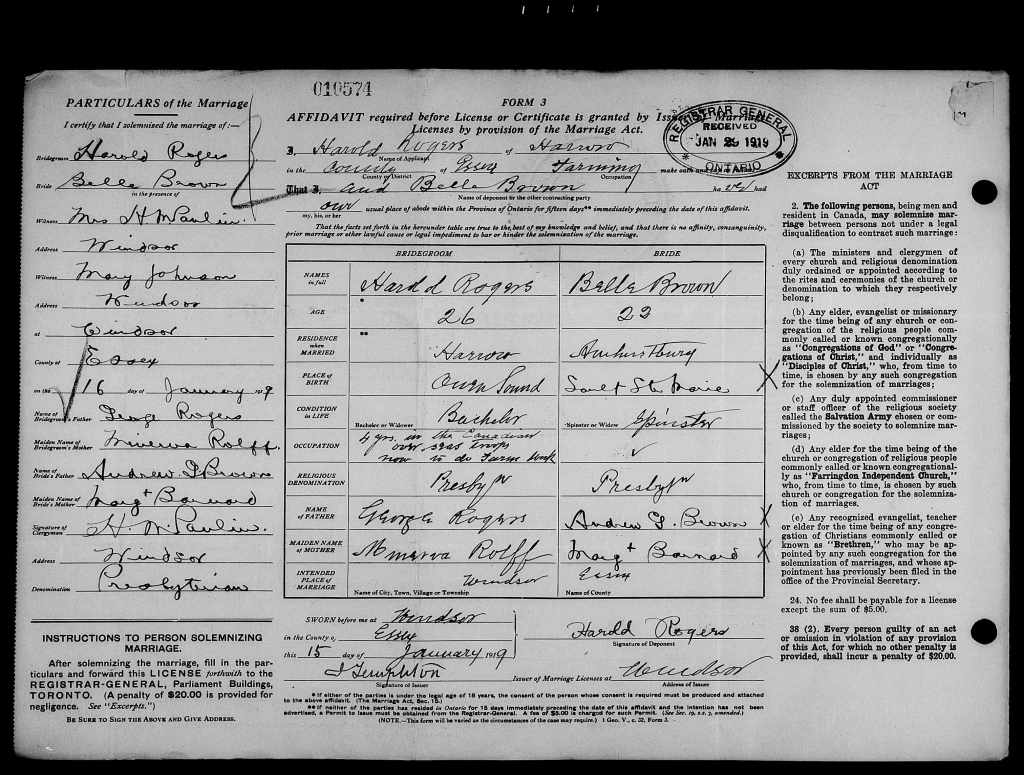 010574
PARTICULARS of the Marriage
I certify that I solemnized the marriage of:—
Bridegroom Harold Rogers
Bride Belle Brown
in the presence of
Witness Mrs H M Paulin
Address Windsor
Witness Mary Johnson
Address Windsor
at Windsor
County of Essex
on the 16 day of January 1919
Name of Bridegroom's Father George Rogers
Maiden Name of Bridegroom's Mother Minerva Rolff
Name of Bride's Father Andrew G Brown
Maiden Name of Bride's Mother Margt Barnard
Signature of Clergyman H. M. Paulin.
Address Windsor
Denomination Presbyterian
INSTRUCTIONS TO PERSON SOLEMNIZING
MARRIAGE.
After solemnizing the marriage, fill in the par-
ticulars and forward this LICENSE forthwith to the
REGISTRAR-GENERAL, Parliament Buildings,
TORONTO. (A penalty of $20.00 is provided for
negligence. See "Excerpts.")
BE SURE TO SIGN THE ABOVE AND GIVE ADDRESS.
FORM 3
AFFIDAVIT required before License or Certificate is granted by Issuer of Marriage
Licenses by provision of the Marriage Act.
REGISTRAR GENERAL
RECEIVED
JAN 29 1919
ONTARIO
I, Harold Rogers of Harrow
Name of Applicant
in the County of Essex Farming make oath and say as follows
County or District Occupation
That I, and Belle Brown have had
Name of deponent or the other contracting party
our usual place of abode within the Province of Ontario for fifteen days** immediately preceding the date of this affidavit.
my, his, or her
That the facts set forth in the hereunder table are true to the best of my knowledge and belief, and that there is no affinity, consanguinity,
prior marriage or other lawful cause or legal impediment to bar or hinder the solemnization of the marriage.
BRIDEGROOM BRIDE
NAMES in full Harold Rogers Belle Brown
AGE * 26 23
RESIDENCE when MARRIED ** Harrow Amherstburg
PLACE OF BIRTH Owen Sound Sault Ste Marie X
CONDITION IN LIFE Bachelor Spinster
Bachelor or Widower Spinster or Widow
OCCUPATION 4 yrs. in the Canadian
over seas troops
now to do Farm work
RELIGIOUS DENOMINATION Presbyn Presbyn
NAME OF FATHER George Rogers Andrew G. Brown X
MAIDEN NAME OF MOTHER Minerva Rolff Margt Barnard X
INTENDED PLACE OF MARRIAGE Windsor Essex
Name of City, Town, Village or Township Name of County
SWORN before me at Windsor
in the County of Essex
this 15 day of January 1919
Harold Rogers
Signature of Deponent
J Templeton Issuer of Marriage Licenses at Windsor
Signature of Issuer Address of Issuer
* If either of the parties is under the legal age of 18 years, the consent of the person whose consent is required must be produced and attached
to the above affidavit. (The Marriage Act, Sec. 15.)
** If neither of the parties has resided in Ontario for 15 days immediately preceding the date of this affidavit and the intention has not been
advertised, a Permit to Issue must be obtained from the Registrar-General. A fee of $5.00 is charged for such Permit. (See Sec. 19, s.s. 7, amended.)
(NOTE.—This form will be varied as the circumstances of the case may require.) 1 Geo. V., c. 32, Form 3.
EXCERPTS FROM THE MARRIAGE
ACT
2. The following persons, being men and
resident in Canada, may solemnise mar-
riage between persons not under a legal
disqualification to contract such marriage:
(a) The ministers and clergymen of
every church and religious denomination
duly ordained or appointed according to
the rites and ceremonies of the church or
denomination to which they respectively
belong;
(b) Any elder, evangelist or missionary
for the time being of any church or con-
gregation of the religious people com-
monly called or known congregationally
as "Congregations of God" or "Congre-
gations of Christ," and individually as
"Disciples of Christ," who, from time to
time, is chosen by any such congregation
for the solemnization of marriages;
(c) Any duly appointed commissioner
or staff officer of the religious society
called the Salvation Army chosen or com-
missioned by the society to solemnize mar-
riages;
(d) Any elder for the time being of the
church or congregation of religious people
commonly called or known congregational-
ly as "Farringdon Independent Church,"
who, from time to time, is chosen by such
church or congregation for the solemniza-
tion of marriages.
(e) Any recognized evangelist, teacher
or elder for the time being of any congre-
gation of Christians commonly called or
known as "Brethren," who may be ap-
pointed by any such congregation for the
solemnization of marriages, and whose ap-
pointment has previously been filed in the
office of the Provincial Secretary.
24. No fee shall be payable for a license
except the sum of $5.00.
38 (2). Every person guilty of an act
or omission in violation of any provision
of this Act, for which no other penalty is
provided, shall incur a penalty of $20.00.